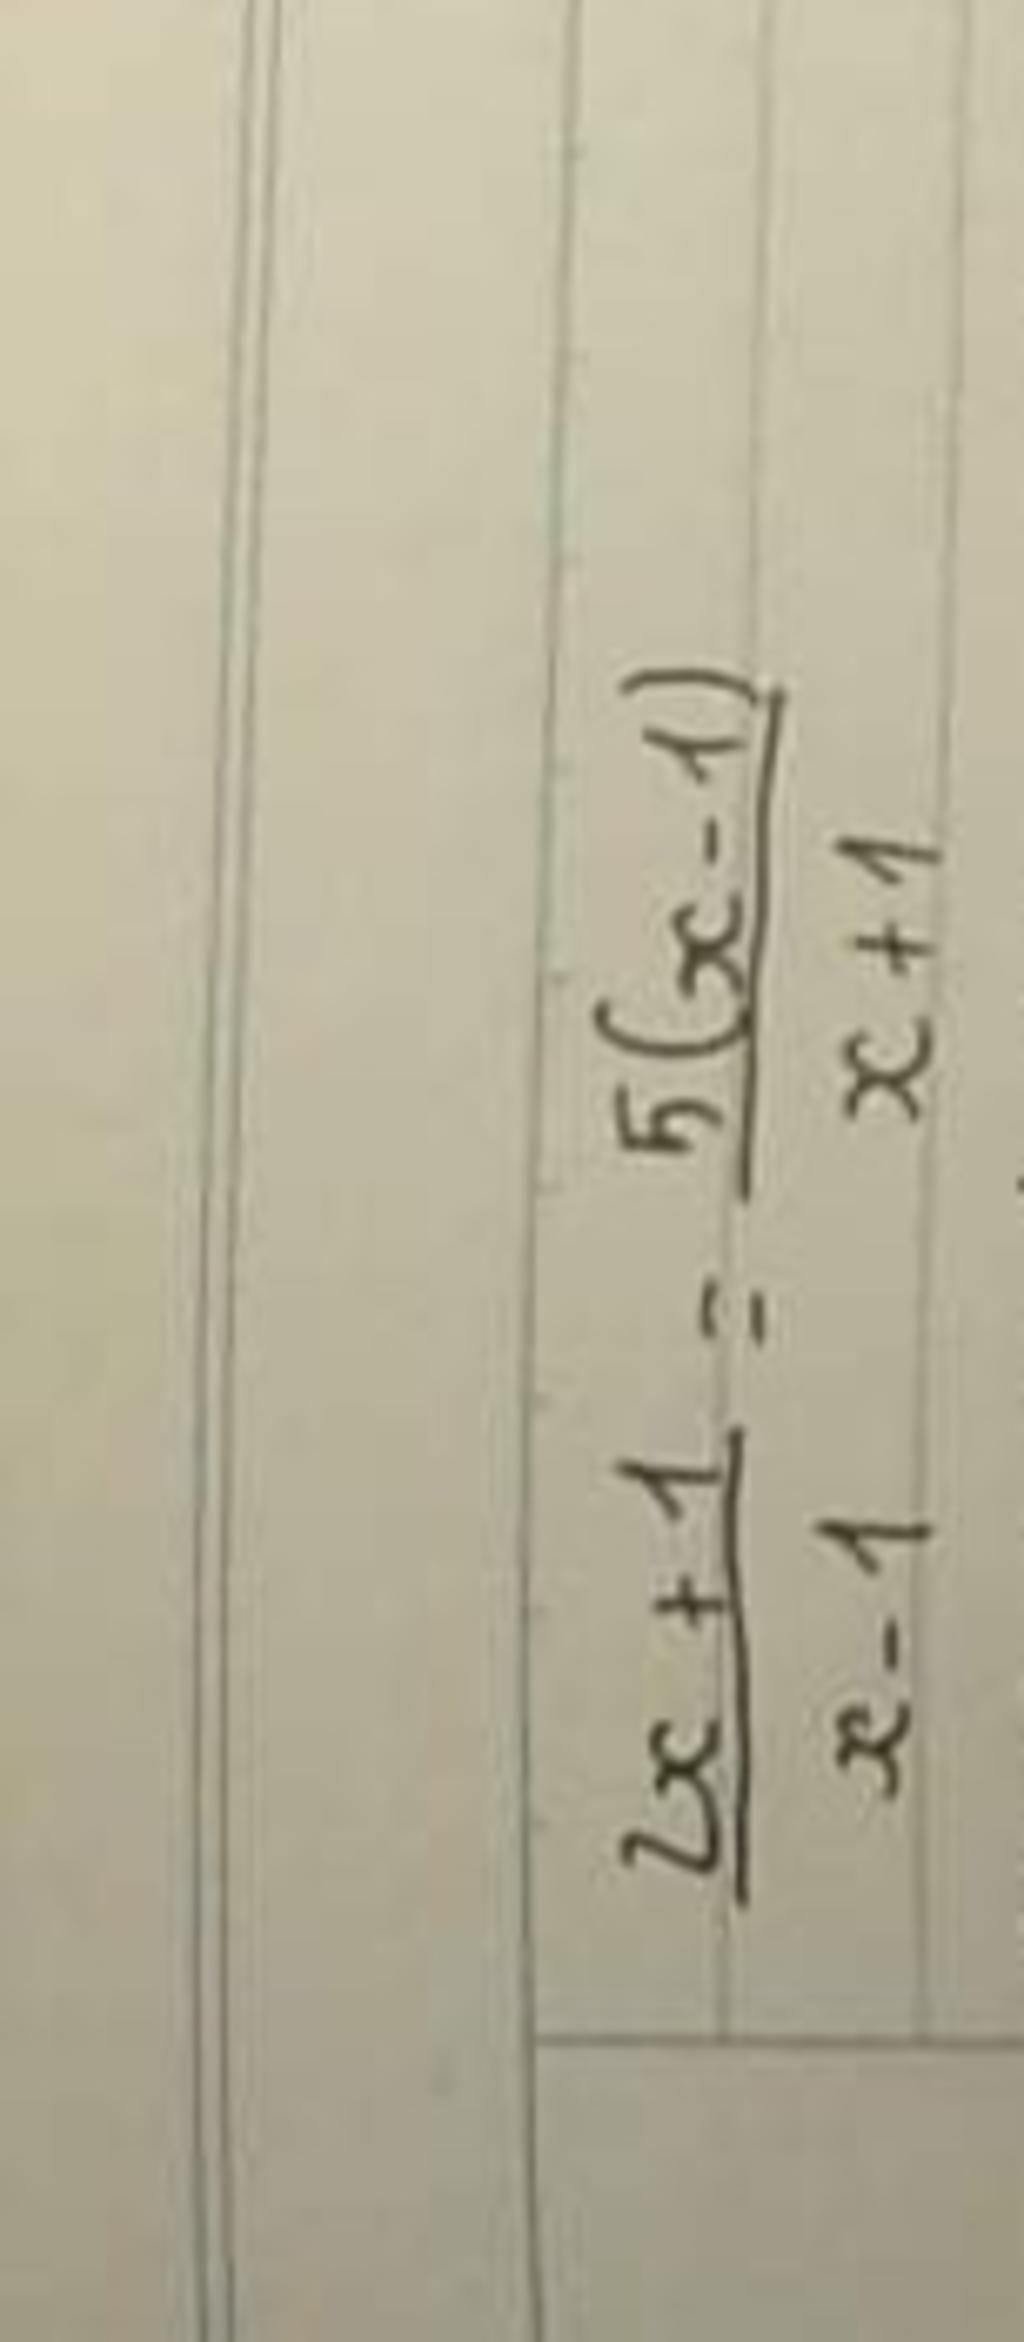 2x + 1 = 5(x - 1)
x - 1 x + 1